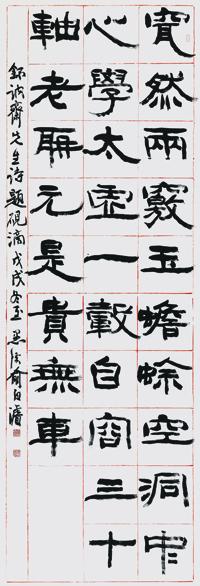 窅然兩竅玉蟾蜍空洞中
心學太虛一轂自容三十
軸老聃元是貴無車
錄誠齋先生詩題硯滴 戊戌冬至